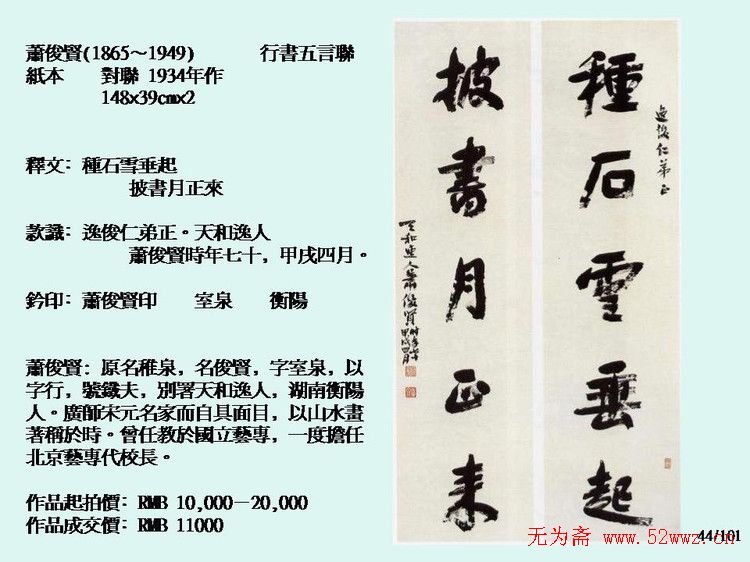 蕭俊賢(1865～1949) 行書五言聯
紙本 對聯 1934年作
148x39cmx2
釋文: 種石雪垂起
披書月正來
款識: 逸俊仁弟正。天和逸人
蕭俊賢時年七十，甲戌四月。
鈐印: 蕭俊賢印 室泉 衡陽
蕭俊賢: 原名稚泉，名俊賢，字室泉，以
字行，號鐵夫，別署天和逸人，湖南衡陽
人。廣師宋元名家而自具面目，以山水畫
著稱於時。曾任教於國立藝專，一度擔任
北京藝專代校長。
作品起拍價: RMB 10,000－20,000
作品成交價: RMB 11000
種石雪垂起
逸俊仁弟正
披書月正來
天和逸人蕭俊賢時年七十
甲戌四月
44/101
无为斋 www.52wwz.cn